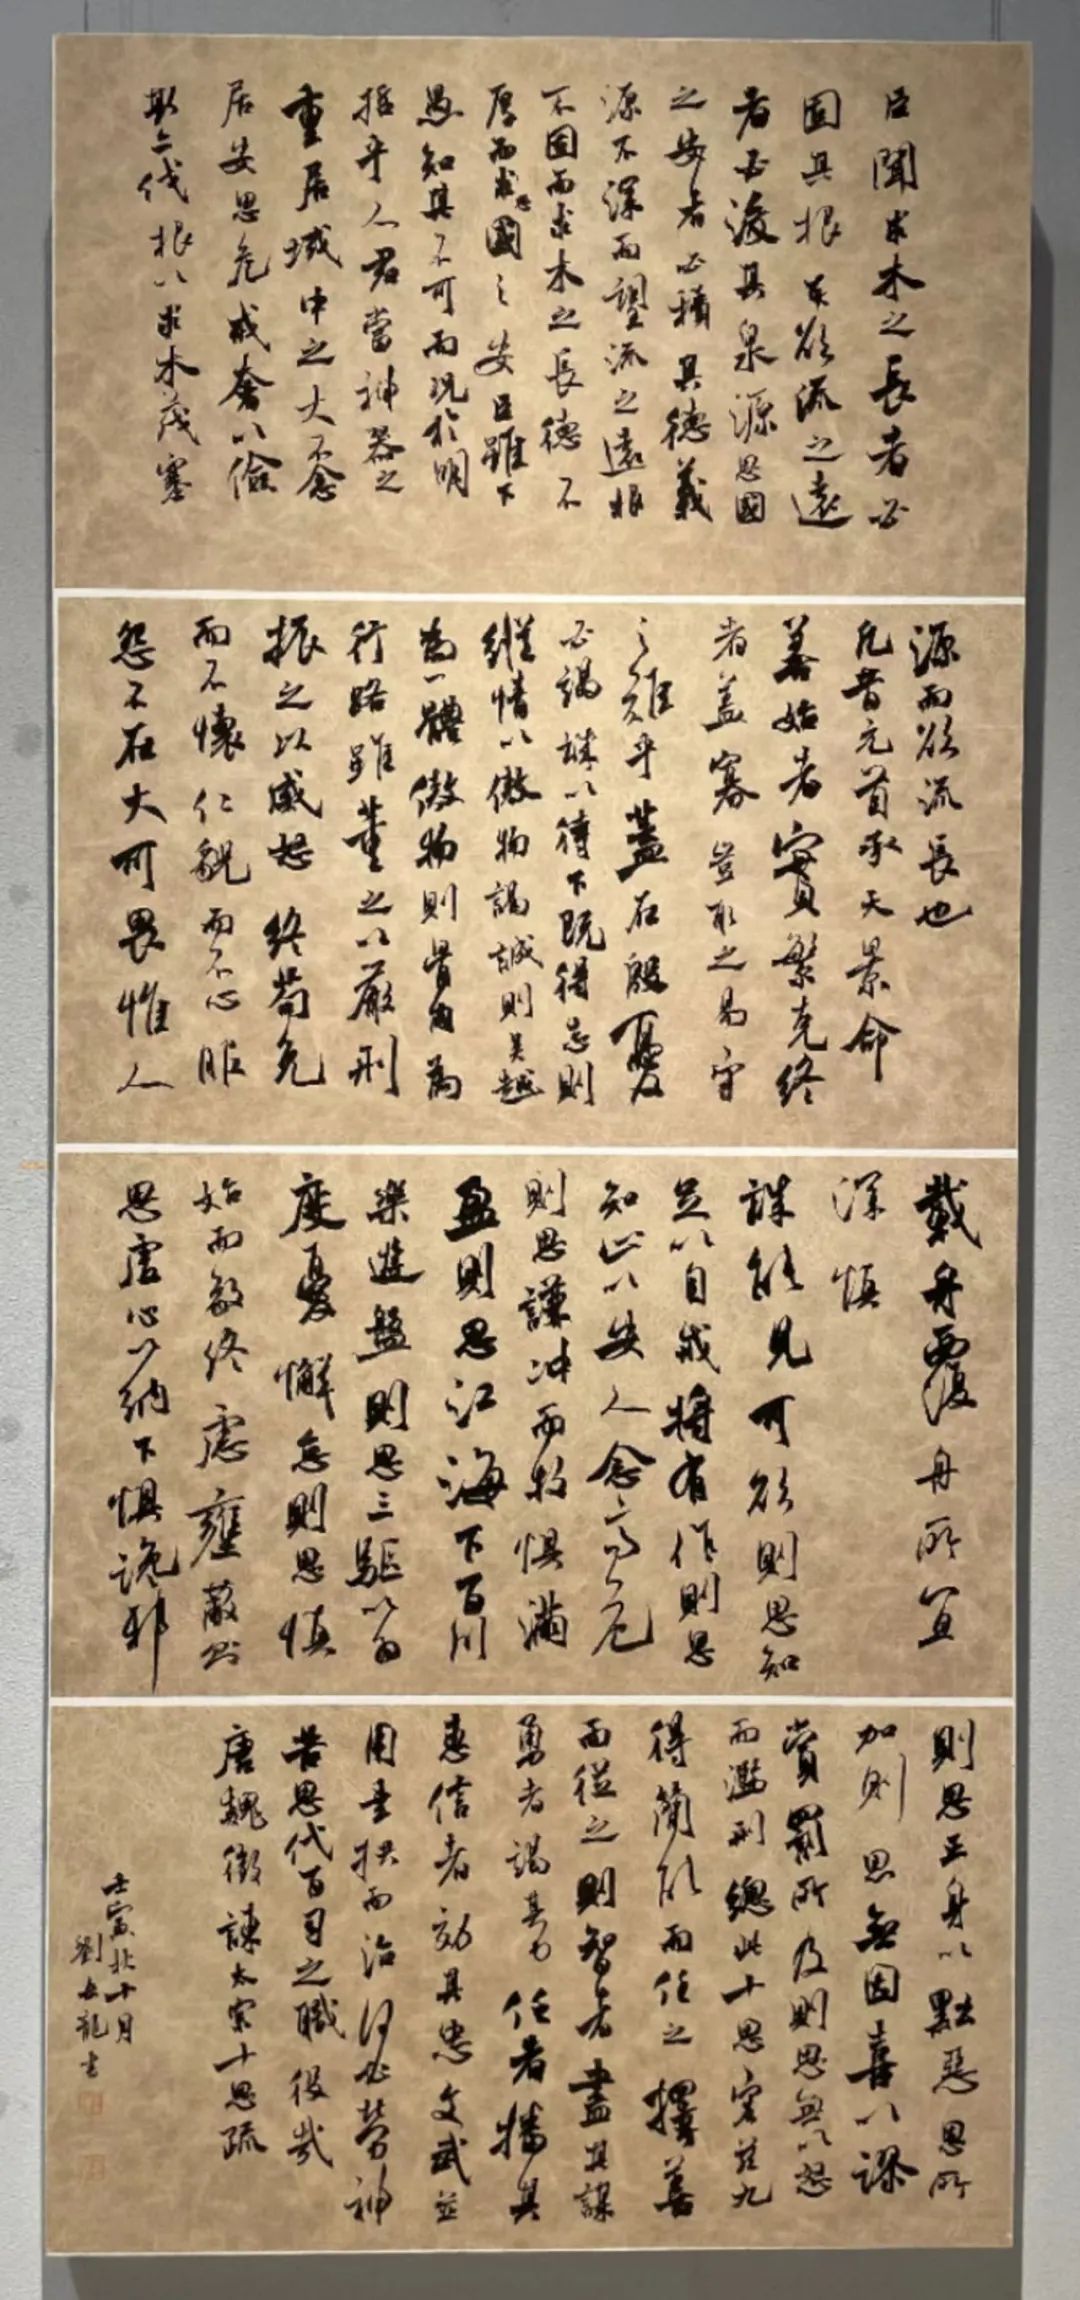 臣聞求木之長者必
固其根本欲流之遠
者必浚其泉源思國
之安者必積其德義
源不深而望流之遠根
不固而求木之長德不
厚而求思國之安臣雖下
愚知其不可而況於明
哲乎人君當神器之
重居域中之大不念
居安思危戒奢以儉
斯亦伐根以求木茂塞
源而欲流長也
凡昔元首承天景命
善始者實繁克終
者蓋寡豈取之易守
之難乎蓋在殷憂
必竭誠以待下既得志則
縱情以傲物竭誠則吳越
為一體傲物則骨肉為
行路雖董之以嚴刑
振之以威怒終苟免
而不懷仁貌而不心服
怨不在大可畏惟人
載舟覆舟所宜
深慎
誠能見可欲則思知
足以自戒將有作則思
知止以安人念高危
則思謙沖而牧懼滿
盈則思江海下百川
樂遊盤則思三驅以為
度憂懈怠則思慎
始而敬終慮壅蔽則
思虛心以納下懼讒邪
則思正身以黜惡恩所
加則思無因喜以謬
賞罰所及則思無以怒
而濫刑總此十思宏茲九
得簡能而任之擇善
而從之則智者盡其謀
勇者竭其力仁者播其
惠信者效其忠文武並
用垂拱而治何必勞神
苦思代百司之職役哉
唐魏徵諫太宗十思疏
壬寅 十月
劉 龍書